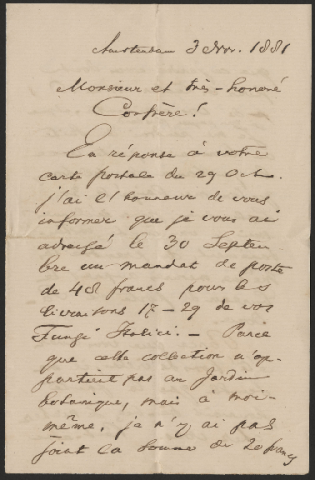 Amsterdam 3 Nov. 1881
Monsieur et très-honoré
Confrère!
En réponse à votre
carte postale du 29 Oct.
j'ai l'honneur de vous
informer que je vous ai
adressé le 30 Septem
bre un mandat de poste
de 48 francs pour les
livraisons 17-29 de vos
Fungi Italici. — Parce
que cette collection n'ap-
partient pas au Jardin
botanique, mais à moi-
même, je n'y ai pas
joint la somme de 20 francs